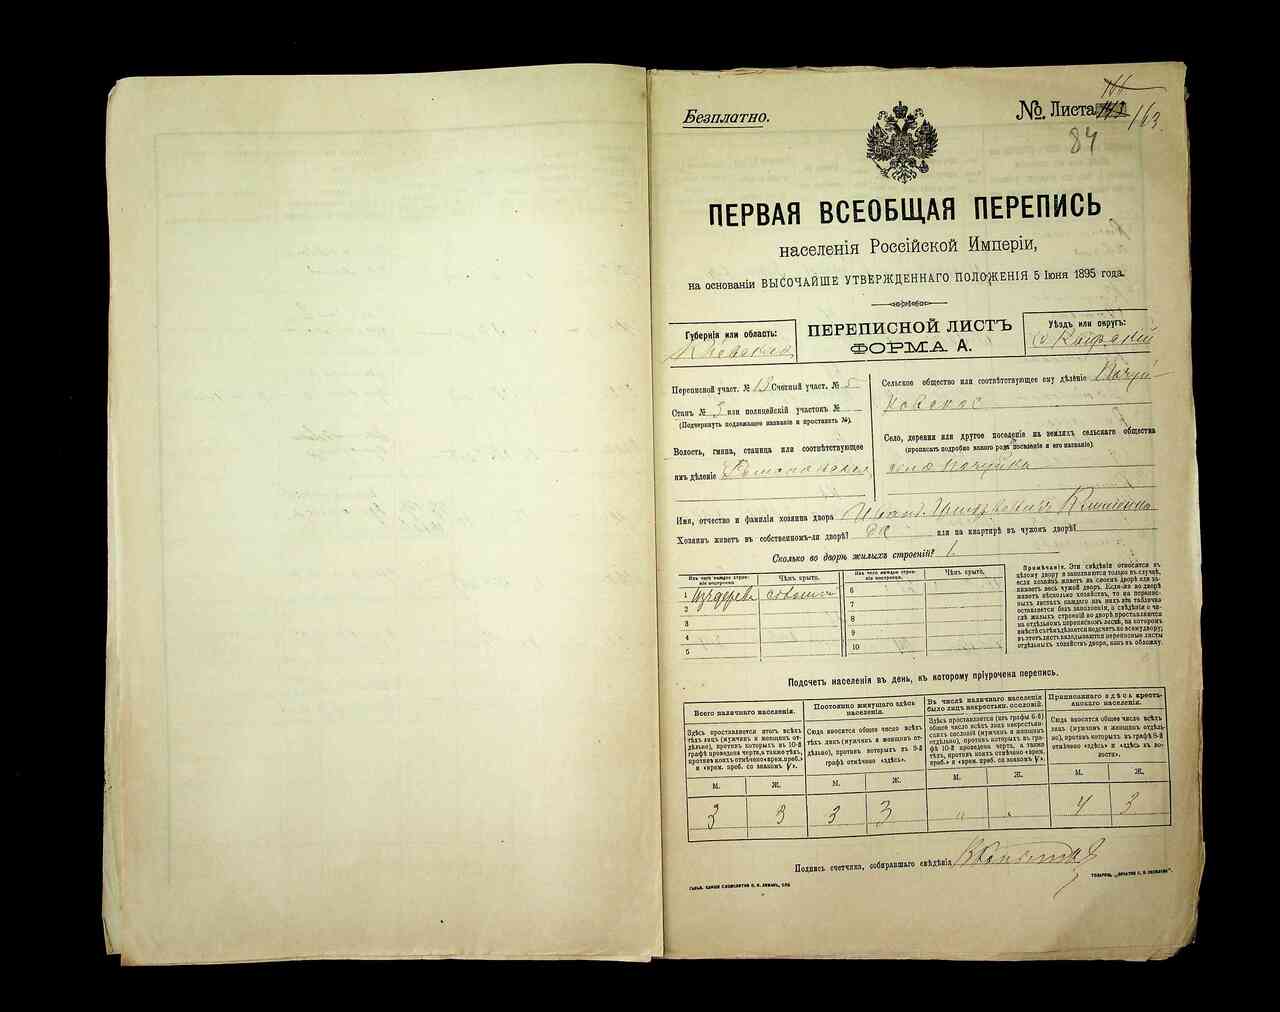 Безплатно.
№ Листа 163.
84
ПЕРВАЯ ВСЕОБЩАЯ ПЕРЕПИСЬ
населенія Россійской Имперіи,
на основаніи ВЫСОЧАЙШЕ УТВЕРЖДЕННАГО ПОЛОЖЕНІЯ 5 Іюня 1895 года.
Губернія или область:
Кіевская
ПЕРЕПИСНОЙ ЛИСТЪ
ФОРМА А.
Уѣздъ или округъ:
Переписной участ. № 13 Счетный участ. № 5
Станъ № 3 или полицейскій участокъ №
(Подчеркнуть подлежащее названіе и проставить №).
Волость, гмина, станица или соотвѣтствующее
имъ дѣленіе
Сельское общество или соотвѣтствующее ему дѣленіе Почуй-
ковское
Село, деревня или другое поселеніе на земляхъ сельскаго общества
(прописать подробно какого рода поселеніе и его названіе)
село Почуйки
Имя, отчество и фамилія хозяина двора
Хозяинъ живетъ въ собственномъ-ли дворѣ? да или на квартирѣ въ чужомъ дворѣ?
Сколько во дворѣ жилыхъ строеній? 1
Изъ чего каждое строеніе построено.
Чѣмъ крыто.
Изъ чего каждое строеніе построено.
Чѣмъ крыто.
1 Изъ дерева соломою
2
3
4
5
6
7
8
9
10
Примѣчаніе. Эти свѣдѣнія относятся къ
цѣлому двору и заполняются только въ случаѣ,
если хозяинъ живетъ въ своемъ дворѣ или занимаетъ
весь чужой дворъ. Если-же во дворѣ
живетъ нѣсколько хозяйствъ, то на переписныхъ
листахъ каждаго изъ нихъ эта табличка
оставляется безъ заполненія, а свѣдѣнія о числѣ
жилыхъ строеній во дворѣ проставляются
на отдѣльномъ переписномъ листѣ, на которомъ
вмѣстѣ съ тѣмъ дѣлается подсчетъ по всему двору;
въ этотъ листъ вкладываются переписные листы
отдѣльныхъ хозяйствъ двора, какъ въ обложку.
Подсчетъ населенія въ день, къ которому пріурочена перепись.
Всего наличнаго населенія.
Здѣсь проставляется итогъ всѣхъ
тѣхъ лицъ (мужчинъ и женщинъ отдѣльно),
противъ которыхъ въ 10-й
графѣ проведена черта, а также тѣхъ,
противъ коихъ отмѣчено «врем. преб.»
и «врем. преб. со знакомъ V».
Постоянно живущаго здѣсь
населенія.
Сюда вносится общее число всѣхъ
тѣхъ лицъ (мужчинъ и женщинъ отдѣльно),
противъ которыхъ въ 9-й
графѣ отмѣчено «здѣсь».
Въ числѣ наличнаго населенія
было лицъ некрестьян. сословій.
Здѣсь проставляется (изъ графы 6-й)
общее число всѣхъ лицъ некрестьянскихъ
сословій (мужчинъ и женщинъ
отдѣльно), противъ которыхъ въ графѣ
10-й проведена черта, а также
тѣхъ, противъ коихъ отмѣчено «врем.
преб.» и «врем. преб. со знакомъ V».
Приписаннаго здѣсь крестьянскаго
населенія.
Сюда вносится общее число всѣхъ
лицъ (мужчинъ и женщинъ отдѣльно),
противъ которыхъ въ графѣ 8-й
отмѣчено «здѣсь» и «здѣсь въ волости».
М. Ж. М. Ж. М. Ж. М. Ж.
3 3 3 3 " " 4 3
Подпись счетчика, собиравшаго свѣдѣнія